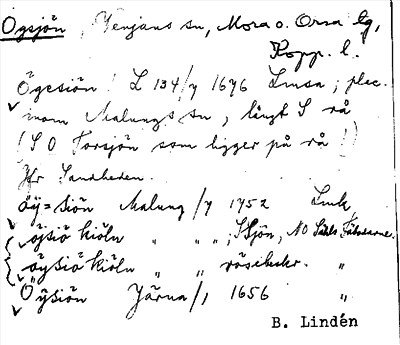 Ögsjön, Venjans sn, Mora o. Orsa tg,
Kopp. l.
Ögesiön! L 134/7 1676 Lmsa; plac.
inom Malungs sn, långt S rå
(S O Torsjön som ligger på rå!)
Jfr Sandheden.
öÿ=siön Malung /7 1752 Lmk
öÿsiö kiöln " " ", Sjön, NO
öÿsiö kiöln " " rösebeskr. "
Öÿsiön Järna/1 1656 "
B. Lindén